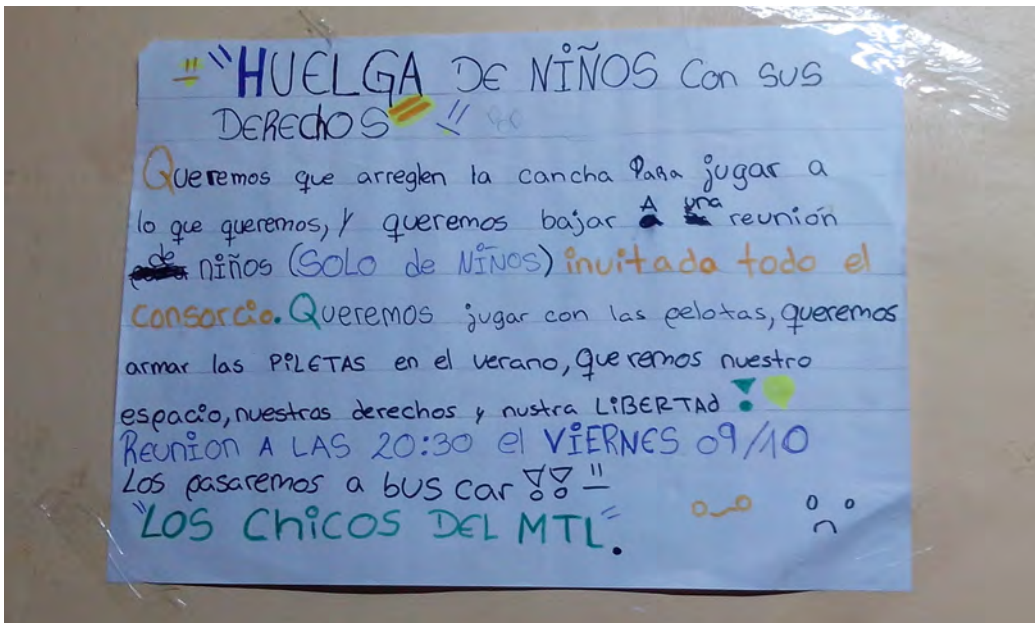 "HUELGA DE NIÑOS Con SUS
DERECHOS"
Queremos que arreglen la cancha Para jugar a
lo que queremos, y queremos bajar A una reunión
de niños (SOLO de NIÑOS) invitada todo el
consorcio. Queremos jugar con las pelotas, queremos
armar las PILETAS en el verano, queremos nuestro
espacio, nuestros derechos y nustra LIBERTAd!
REUNION A LAS 20:30 el VIERNES 09/10
Los pasaremos a bus car !!
"LOS CHICOS DEL MTL".